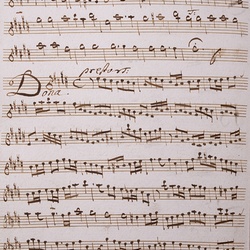 presto.
Dona.